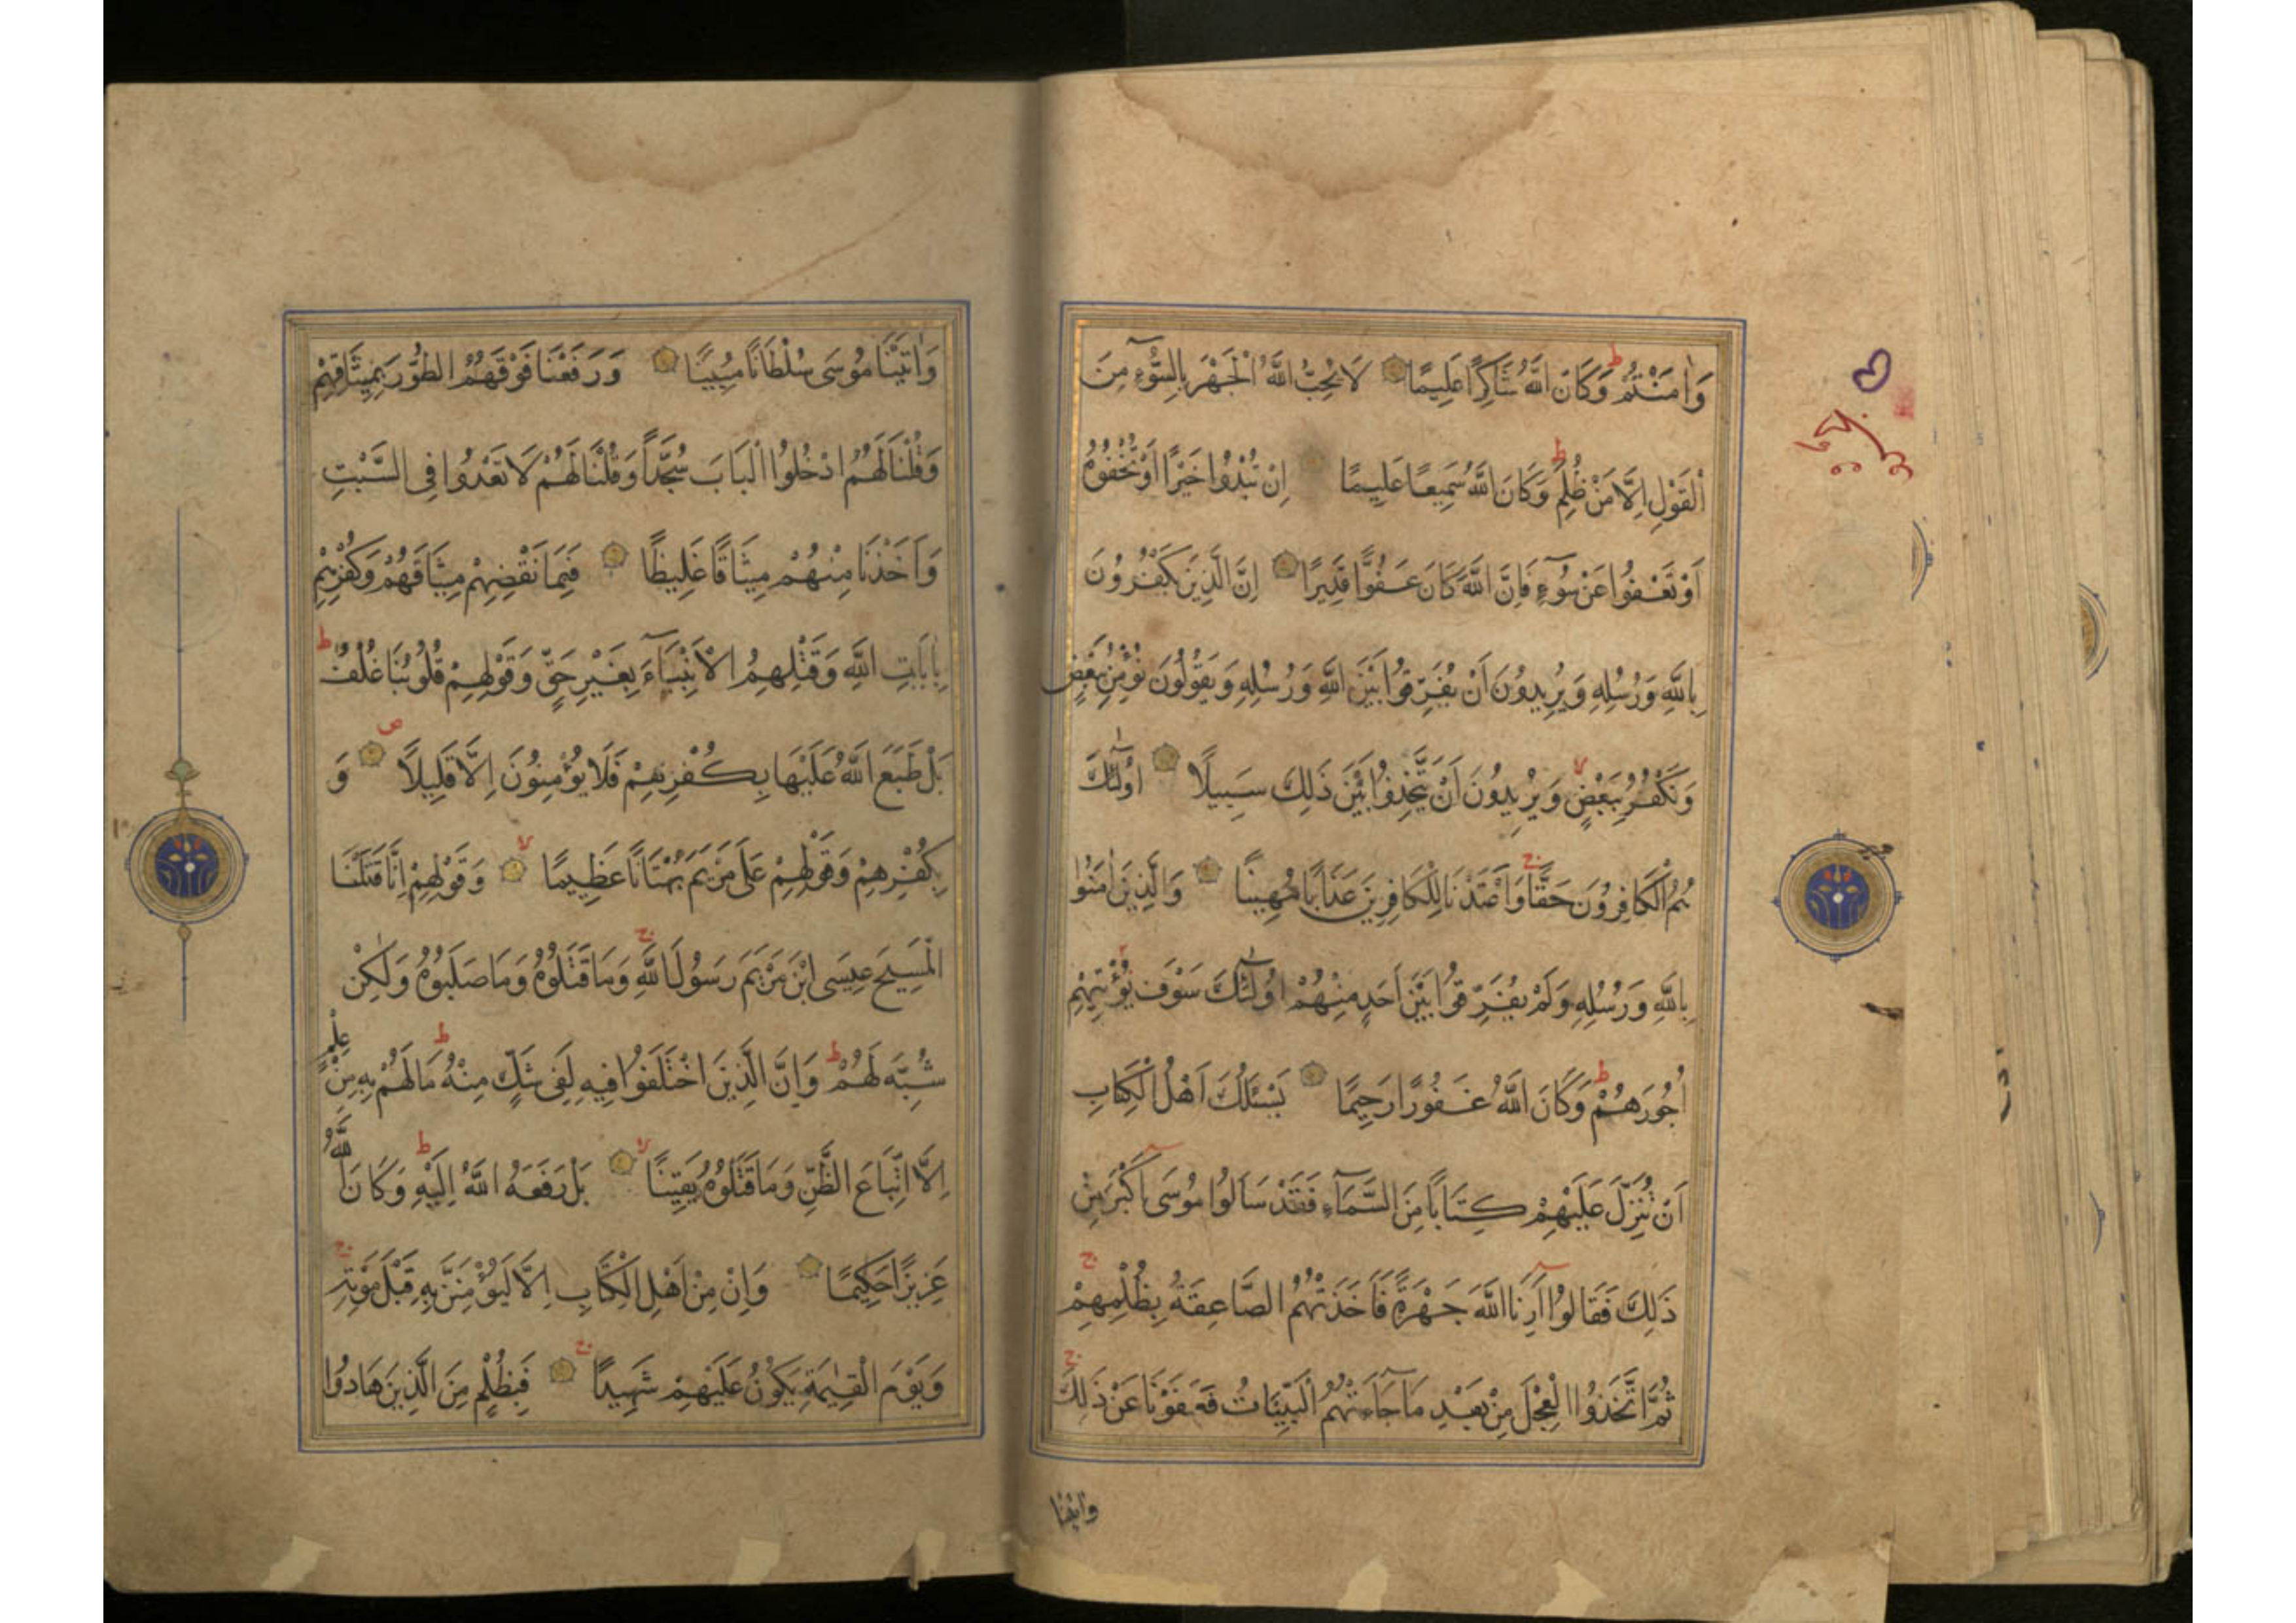 وَاٰمَنْتُمْ وَكَانَ اللهُ شَاكِرًا عَلِيمًا لَا يُحِبُّ اللهُ الْجَهْرَ بِالسُّوۤءِ مِنَ
الْقَوْلِ اِلَّا مَنْ ظُلِمَ وَكَانَ اللهُ سَمِيعًا عَلِيمًا اِنْ تُبْدُوا خَيْرًا اَوْ تُخْفُوهُ
اَوْ تَعْفُوا عَنْ سُوۤءٍ فَاِنَّ اللهَ كَانَ عَفُوًّا قَدِيرًا اِنَّ الَّذِينَ يَكْفُرُونَ
بِاللهِ وَرُسُلِهِ وَيُرِيدُونَ اَنْ يُفَرِّقُوا بَيْنَ اللهِ وَرُسُلِهِ وَيَقُولُونَ نُؤْمِنُ بِبَعْضٍ
وَنَكْفُرُ بِبَعْضٍ وَيُرِيدُونَ اَنْ يَتَّخِذُوا بَيْنَ ذَلِكَ سَبِيلًا اُولٰۤئِكَ
هُمُ الْكَافِرُونَ حَقًّا وَاَعْتَدْنَا لِلْكَافِرِينَ عَذَابًا مُهِينًا وَالَّذِينَ اٰمَنُوا
بِاللهِ وَرُسُلِهِ وَلَمْ يُفَرِّقُوا بَيْنَ اَحَدٍ مِنْهُمْ اُولٰۤئِكَ سَوْفَ نُؤْتِيهِمْ
اُجُورَهُمْ وَكَانَ اللهُ غَفُورًا رَحِيمًا يَسْئَلُكَ اَهْلُ الْكِتَابِ
اَنْ تُنَزِّلَ عَلَيْهِمْ كِتَابًا مِنَ السَّمَاۤءِ فَقَدْ سَاَلُوا مُوسَى اَكْبَرَ مِنْ
ذَلِكَ فَقَالُوا اَرِنَا اللهَ جَهْرَةً فَاَخَذَتْهُمُ الصَّاعِقَةُ بِظُلْمِهِمْ
ثُمَّ اتَّخَذُوا الْعِجْلَ مِنْ بَعْدِ مَا جَاۤءَتْهُمُ الْبَيِّنَاتُ فَعَفَوْنَا عَنْ ذَلِكَ
واتينا
وَاٰتَيْنَا مُوسَى سُلْطَانًا مُبِينًا وَرَفَعْنَا فَوْقَهُمُ الطُّورَ بِمِيثَاقِهِمْ
وَقُلْنَا لَهُمُ ادْخُلُوا الْبَابَ سُجَّدًا وَقُلْنَا لَهُمْ لَا تَعْدُوا فِى السَّبْتِ
وَاَخَذْنَا مِنْهُمْ مِيثَاقًا غَلِيظًا فَبِمَا نَقْضِهِمْ مِيثَاقَهُمْ وَكُفْرِهِمْ
بِاٰيَاتِ اللهِ وَقَتْلِهِمُ الْاَنْبِيَاۤءَ بِغَيْرِ حَقٍّ وَقَوْلِهِمْ قُلُوبُنَا غُلْفٌ
بَلْ طَبَعَ اللهُ عَلَيْهَا بِكُفْرِهِمْ فَلَا يُؤْمِنُونَ اِلَّا قَلِيلًا وَ
بِكُفْرِهِمْ وَقَوْلِهِمْ عَلَى مَرْيَمَ بُهْتَانًا عَظِيمًا وَقَوْلِهِمْ اِنَّا قَتَلْنَا
الْمَسِيحَ عِيسَى ابْنَ مَرْيَمَ رَسُولَ اللهِ وَمَا قَتَلُوهُ وَمَا صَلَبُوهُ وَلٰكِنْ
شُبِّهَ لَهُمْ وَاِنَّ الَّذِينَ اخْتَلَفُوا فِيهِ لَفِى شَكٍّ مِنْهُ مَا لَهُمْ بِهِ مِنْ عِلْمٍ
اِلَّا اتِّبَاعَ الظَّنِّ وَمَا قَتَلُوهُ يَقِينًا بَلْ رَفَعَهُ اللهُ اِلَيْهِ وَكَانَ اللهُ
عَزِيزًا حَكِيمًا وَاِنْ مِنْ اَهْلِ الْكِتَابِ اِلَّا لَيُؤْمِنَنَّ بِهِ قَبْلَ مَوْتِهِ
وَيَوْمَ الْقِيٰمَةِ يَكُونُ عَلَيْهِمْ شَهِيدًا فَبِظُلْمٍ مِنَ الَّذِينَ هَادُوا